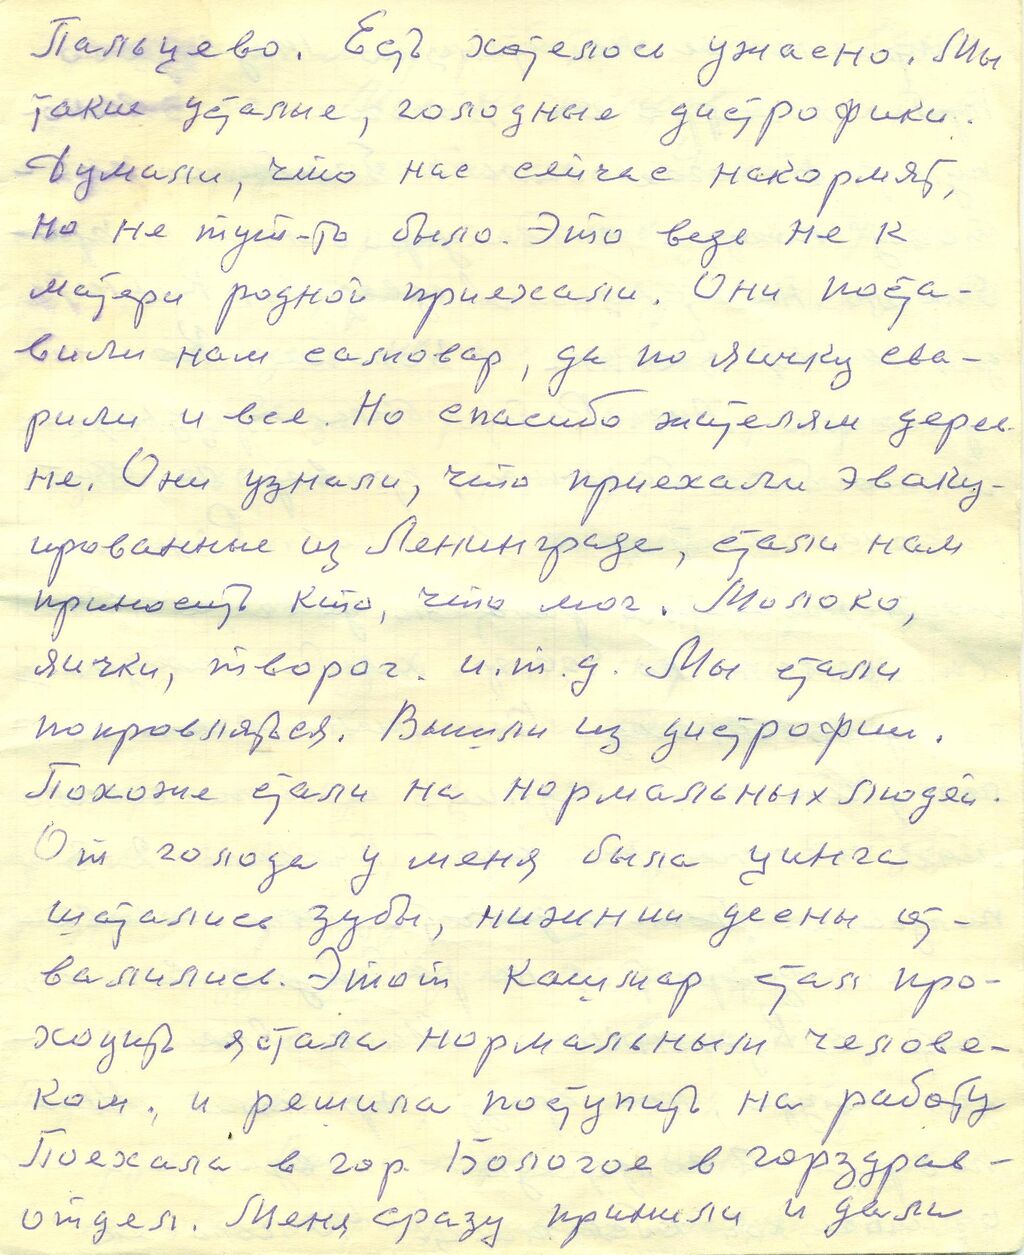 Пальцево. Есть хотелось ужасно. Мы
такие усталые, голодные дистрофики.
Думали, что нас сейчас накормят,
но не тут-то было. Это ведь не к
матери родной приехали. Они поста-
вили нам самовар, да по яичку сва-
рили и все. Но спасибо жителям дерев-
не. Они узнали, что приехали эваку-
ированные из Ленинграда, стали нам
приносить кто, что мог. Молоко,
яички, творог. и.т.д. Мы стали
поправляться. Вышли из дистрофии.
Похоже стали на нормальных людей.
От голода у меня была цинга
шатались зубы, нижнии десны от-
валились. Этот кошмар стал про-
ходить я стала нормальным челове-
ком., и решила поступить на работу
Поехала в гор. Бологое в горздрав-
отдел. Меня сразу приняли и дали